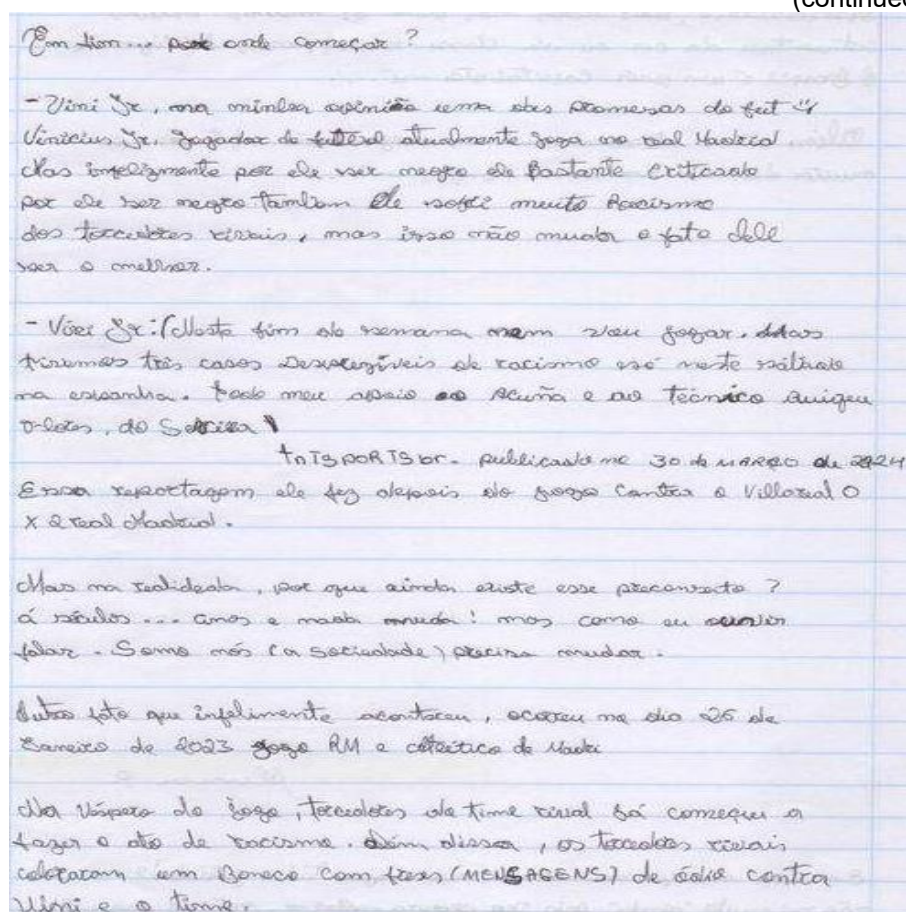 (continued
Em fim... por onde começar?
- Vini Jr, na minha opinião uma das promesas do fut
Vinicius Jr. Jogador de futebol atualmente joga no real Madrid.
Mas infelizmente por ele ser negro ele Bastante criticado
por ele ser negro tambem Ele sofri muito Racismo
dos torcedores rivais, mas isso não muda o fato dele
ser o melhor.
- Vini Jr: (Neste fim de semana nem vou jogar. Mas
tivemos três casos Desprezíveis de racismo só neste sábado
na espanha. todo meu apoio ao Acuña e ao técnico quique
flores, do Sevilla
publicado no 30 de MARÇO de 2024
Essa reportagem ele fez depois do jogo contra o Villareal 0
X 2 real Madrid.
Mas na realidade, por que ainda existe esse preconseito?
á séculos... anos e nada muda! mas como eu
falar. Somo nós (a sociedade) precisa mudar.
Outro fato que infelimente aconteceu, ocorreu no dia 26 de
Janeiro de 2023 jogo RM e de
Na Véspera do jogo, torcedores do time rival já começou a
fazer o ato de racismo. Além dissea, os torcedores rivais
colocaram um Boneco com frases (MENSAGENS) de ódio contra
Vini e o time.